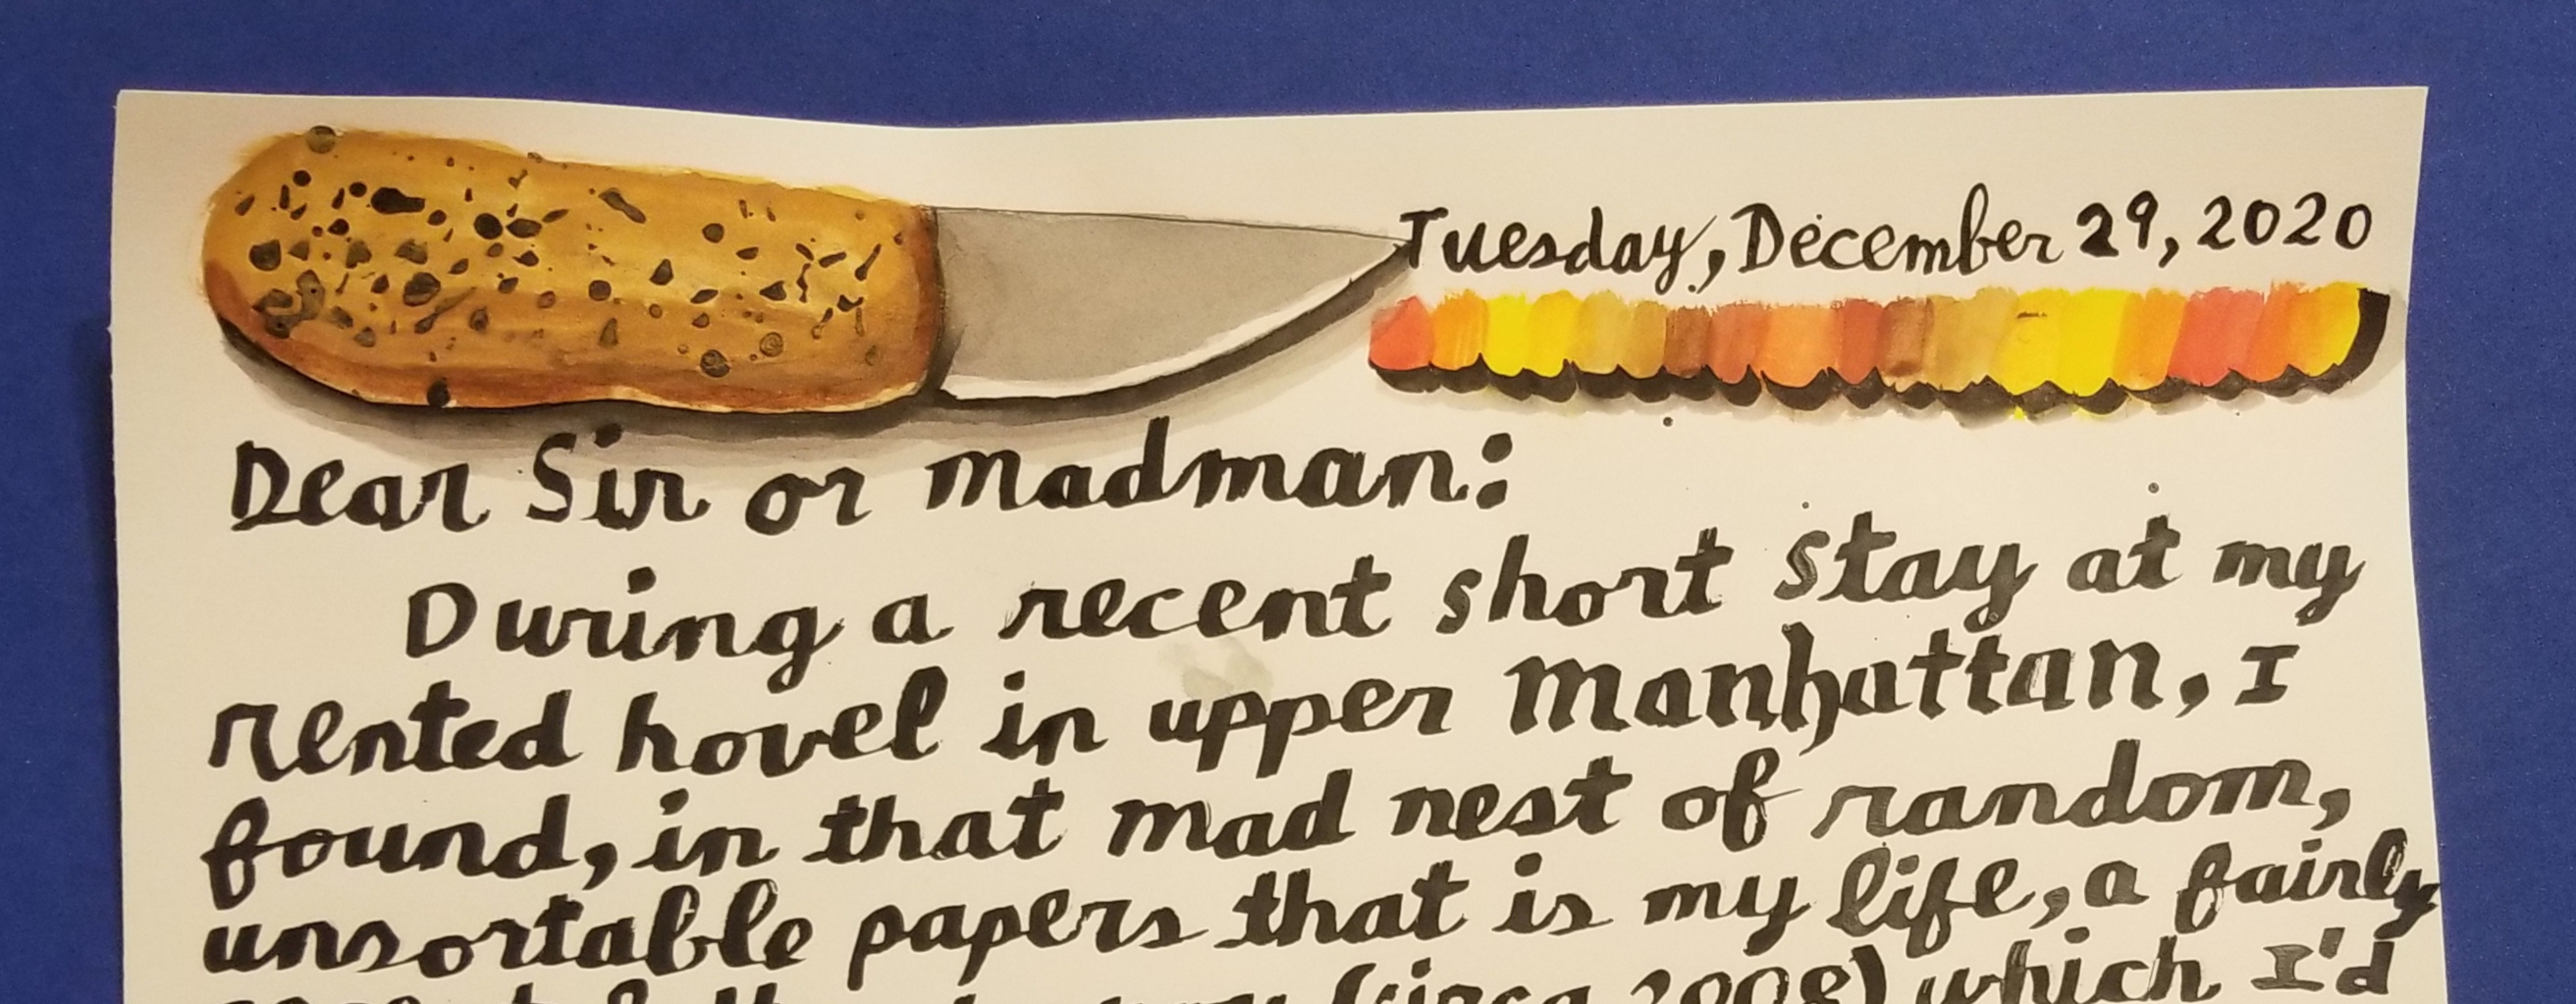 Tuesday, December 29, 2020
Dear Sir or Madman:
During a recent short stay at my
rented hovel in upper Manhattan, I
found, in that mad nest of random,
unsortable papers that is my life, a fairly
(circa 2008) which I'd